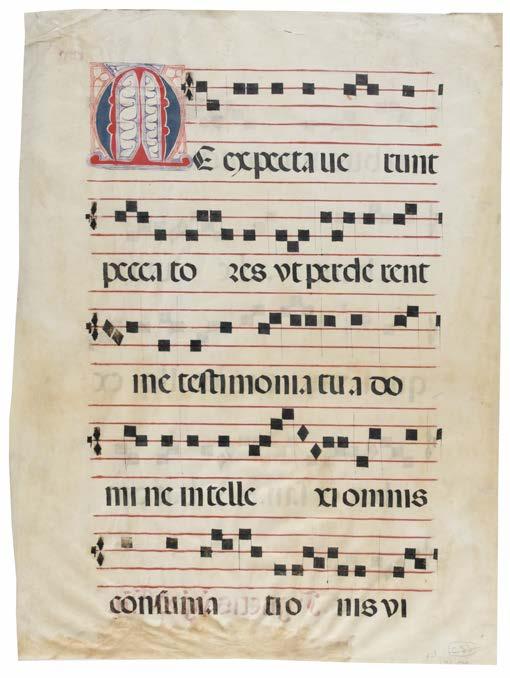 ME expecta ue runt
pecca to res vt perde rent
me testimonia tu a do
mi ne intelle xi omnis
consuma ti o nis vi